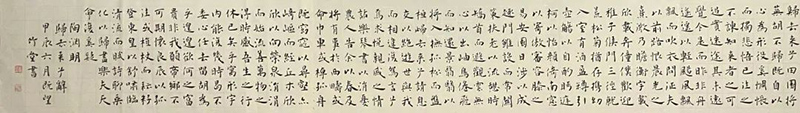 歸去來兮田園將
蕪胡不歸既自以
心為形役奚惆悵
而獨悲悟已往之
不諫知來者之可
追實迷途其未遠
覺今是而昨非舟
遙遙以輕颺風飄
飄而吹衣問征夫
以前路恨晨光之
熹微乃瞻衡宇載
欣載奔僮僕歡迎
稚子候門三徑就
荒松菊猶存攜幼
入室有酒盈樽引
壺觴以自酌眄庭
柯以怡顏倚南窗
以寄傲審容膝之
易安園日涉以成
趣門雖設而常關
策扶老以流憩時
矯首而遐觀雲無
心以出岫鳥倦飛
而知還景翳翳以
將入撫孤松而盤
桓歸去來兮請息
交以絕遊世與我
而相違復駕言兮
焉求悅親戚之情
話樂琴書以消憂
農人告余以春及
將有事於西疇或
命巾車或棹孤舟
既窈窕以尋壑亦
崎嶇而經丘木欣
欣以向榮泉涓涓
而始流善萬物之
得時感吾生之行
休已矣乎寓形宇
內能復幾時曷不
委心任去留胡為
遑遑欲何之富
貴非我願帝鄉不
可期懷良辰以孤
往或植杖而耘耔
登東皋以舒嘯臨
清流而賦詩聊乘
化以歸盡樂夫天
命復奚疑
陶淵明
歸去來兮辭
甲辰六月既望
竹堂書